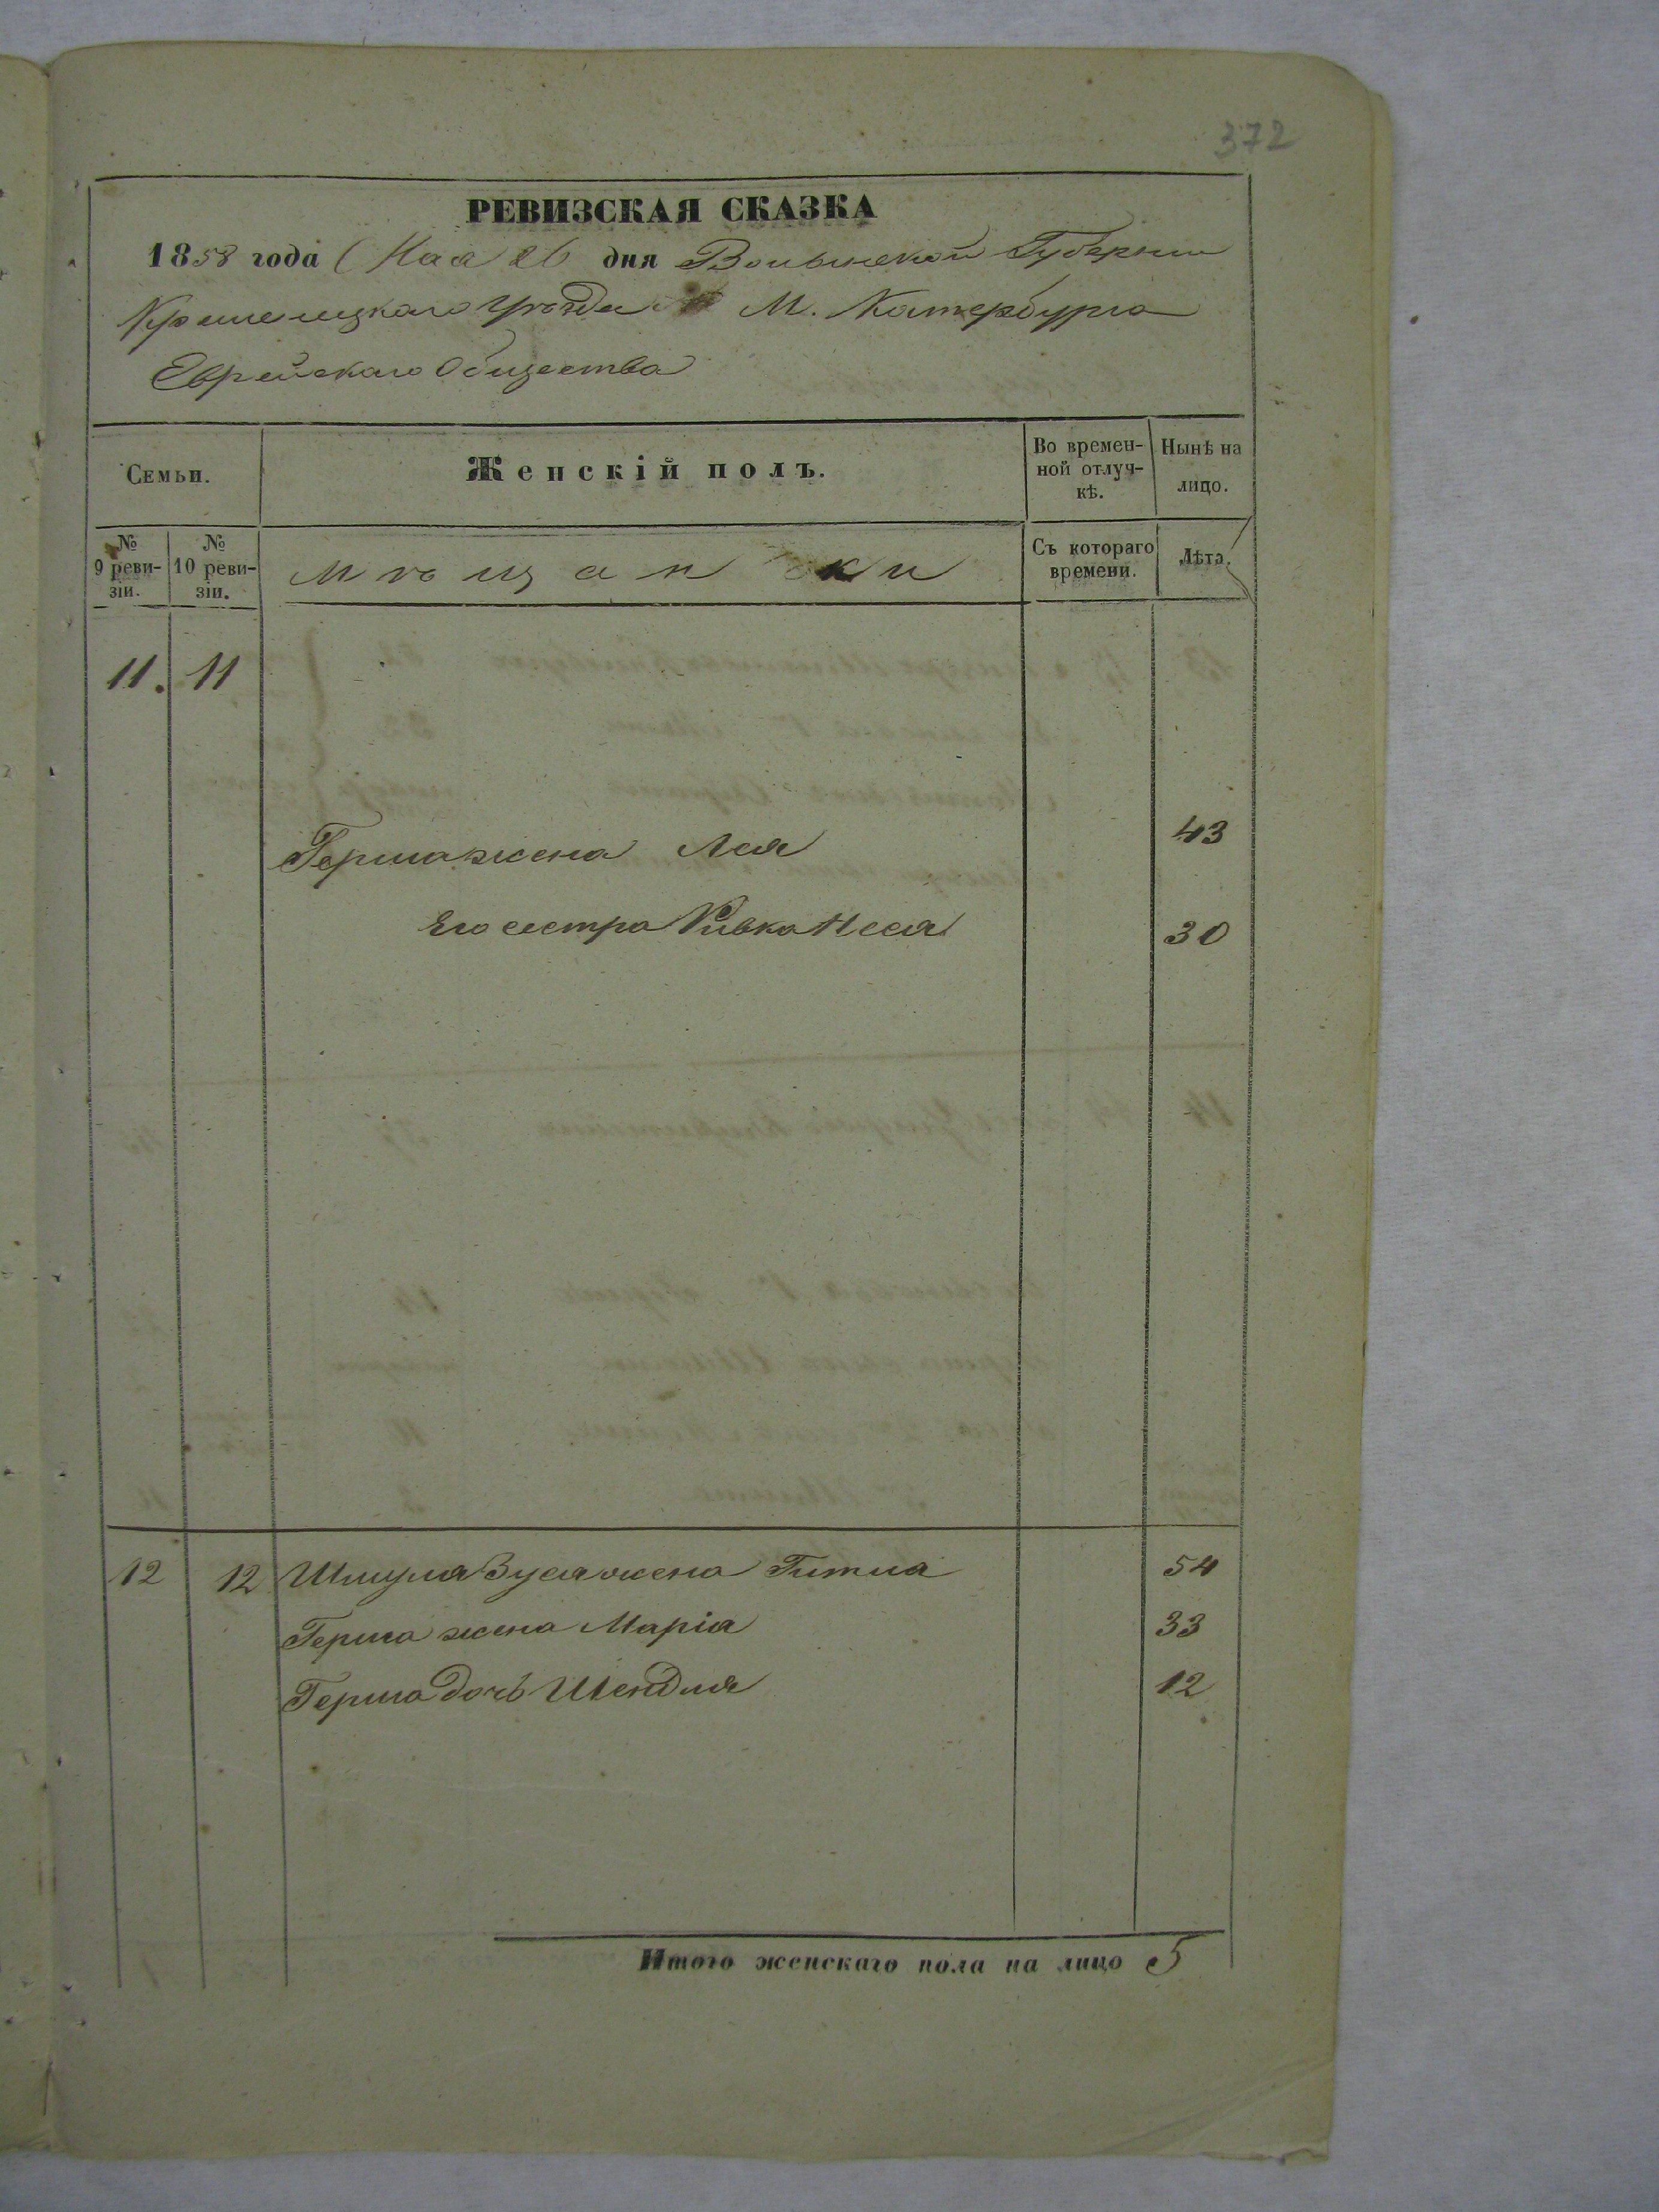 372
РЕВИЗСКАЯ СКАЗКА
1858 года Мая 26 дня Волынской Губернии
Кременецкаго Уѣзда М. Катербурга
Еврейскаго Общества
Семьи.
Женскій полъ.
Во времен-
ной отлуч-
кѣ.
Нынѣ на
лицо.
№
9 реви-
зіи.
№
10 реви-
зіи.
Мѣщанки
Съ котораго
времени.
Лѣта.
11. 11
Герша жена Лея 43
Его сестра Ривка Неся 30
12 12 Шмуля Зуся жена Гитла 54
Герша жена Маріа 33
Герша дочь Шендля 12
Итого женскаго пола на лицо 5